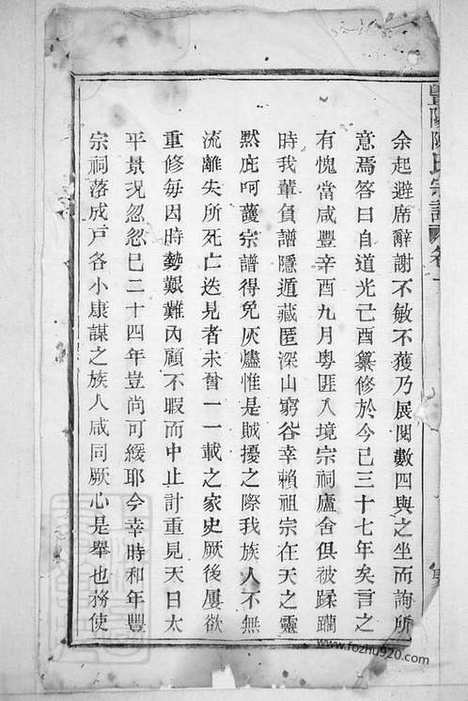 陳氏宗譜 卷一
余起避席辭謝不敏不獲乃展閱數四與之坐而詢所
意焉答曰自道光己酉纂修於今已三十七年矣言之
有愧當咸豐辛酉九月粵匪入境宗祠廬舍俱被蹂躪
時我輩負譜隱遁藏匿深山窮谷幸賴祖宗在天之靈
默庇呵護宗譜得免灰燼惟是賊擾之際我族人不無
流離失所死亡迭見者未曾一一載之家史厥後屢欲
重修每因時勢艱難內顧不暇而中止計重見天日太
平景況忽忽已二十四年豈尚可緩耶今幸時和年豐
宗祠落成戶各小康謀之族人咸同厥心是舉也務使
www.fozhu920.com